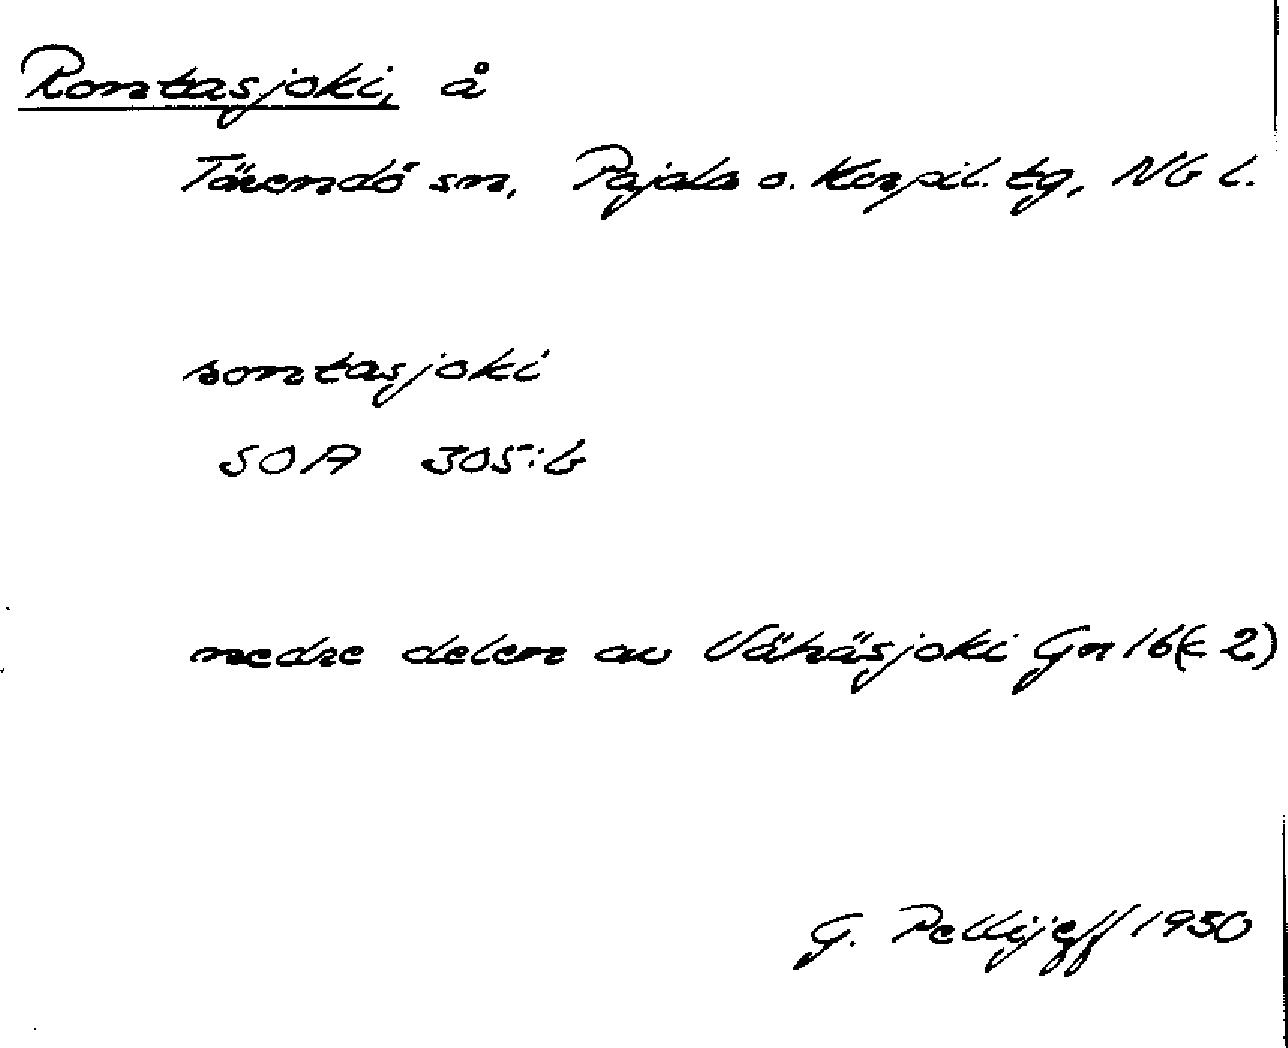 Rontasjoki, å
Tärendö sn, Pajala o. Korpil. tg, Nb l.
rontasjoki
SOA 305:6
nedre delen av Vähäsjoki Gn 16 (E 2)
G. Pellijeff 1950